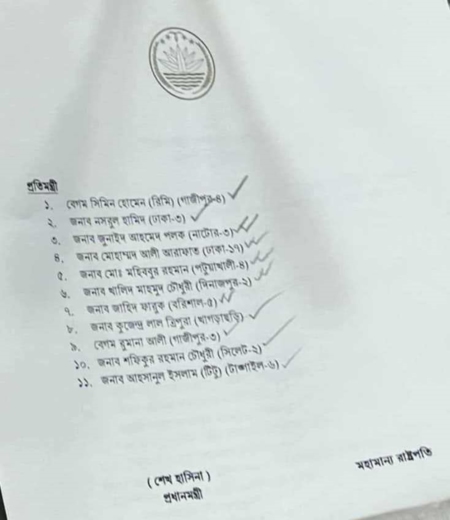 প্রতিমন্ত্রী
১. বেগম সিমিন হোমেন (রিমি) (গাজীপুর-৪)
২. জনাব নসরুল হামিদ (ঢাকা-৩)
৩. জনাব জুনাইদ আহমেদ পলক (নাটোর-৩)
৪. জনাব মোহাম্মদ আলী আরাফাত (ঢাকা-১৭)
৫. জনাব মোঃ মহিববুর রহমান (পটুয়াখালী-৪)
৬. জনাব খালিদ মাহমুদ চৌধুরী (দিনাজপুর-২)
৭. জনাব জাহিদ ফারুক (বরিশাল-৫)
৮. জনাব কুজেন্দ্র লাল ত্রিপুরা (খাগড়াছড়ি)
৯. বেগম রুমানা আলী (গাজীপুর-৩)
১০. জনাব শফিকুর রহমান চৌধুরী (সিলেট-২)
১১. জনাব আহসানুল ইসলাম (টিটু) (টাঙ্গাইল-৬)
মহামান্য রাষ্ট্রপতি
(শেখ হাসিনা)
প্রধানমন্ত্রী